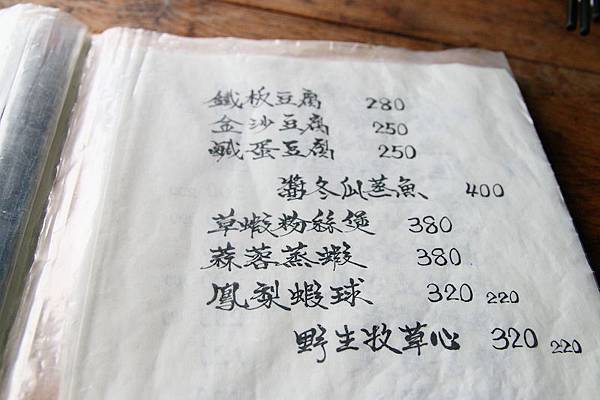 鐵板豆腐 280
金沙豆腐 250
鹹蛋豆腐 250
醬冬瓜蒸魚 400
草蝦粉絲煲 380
蒜蓉蒸蝦 380
鳳梨蝦球 320 220
野生牧草心 320 220